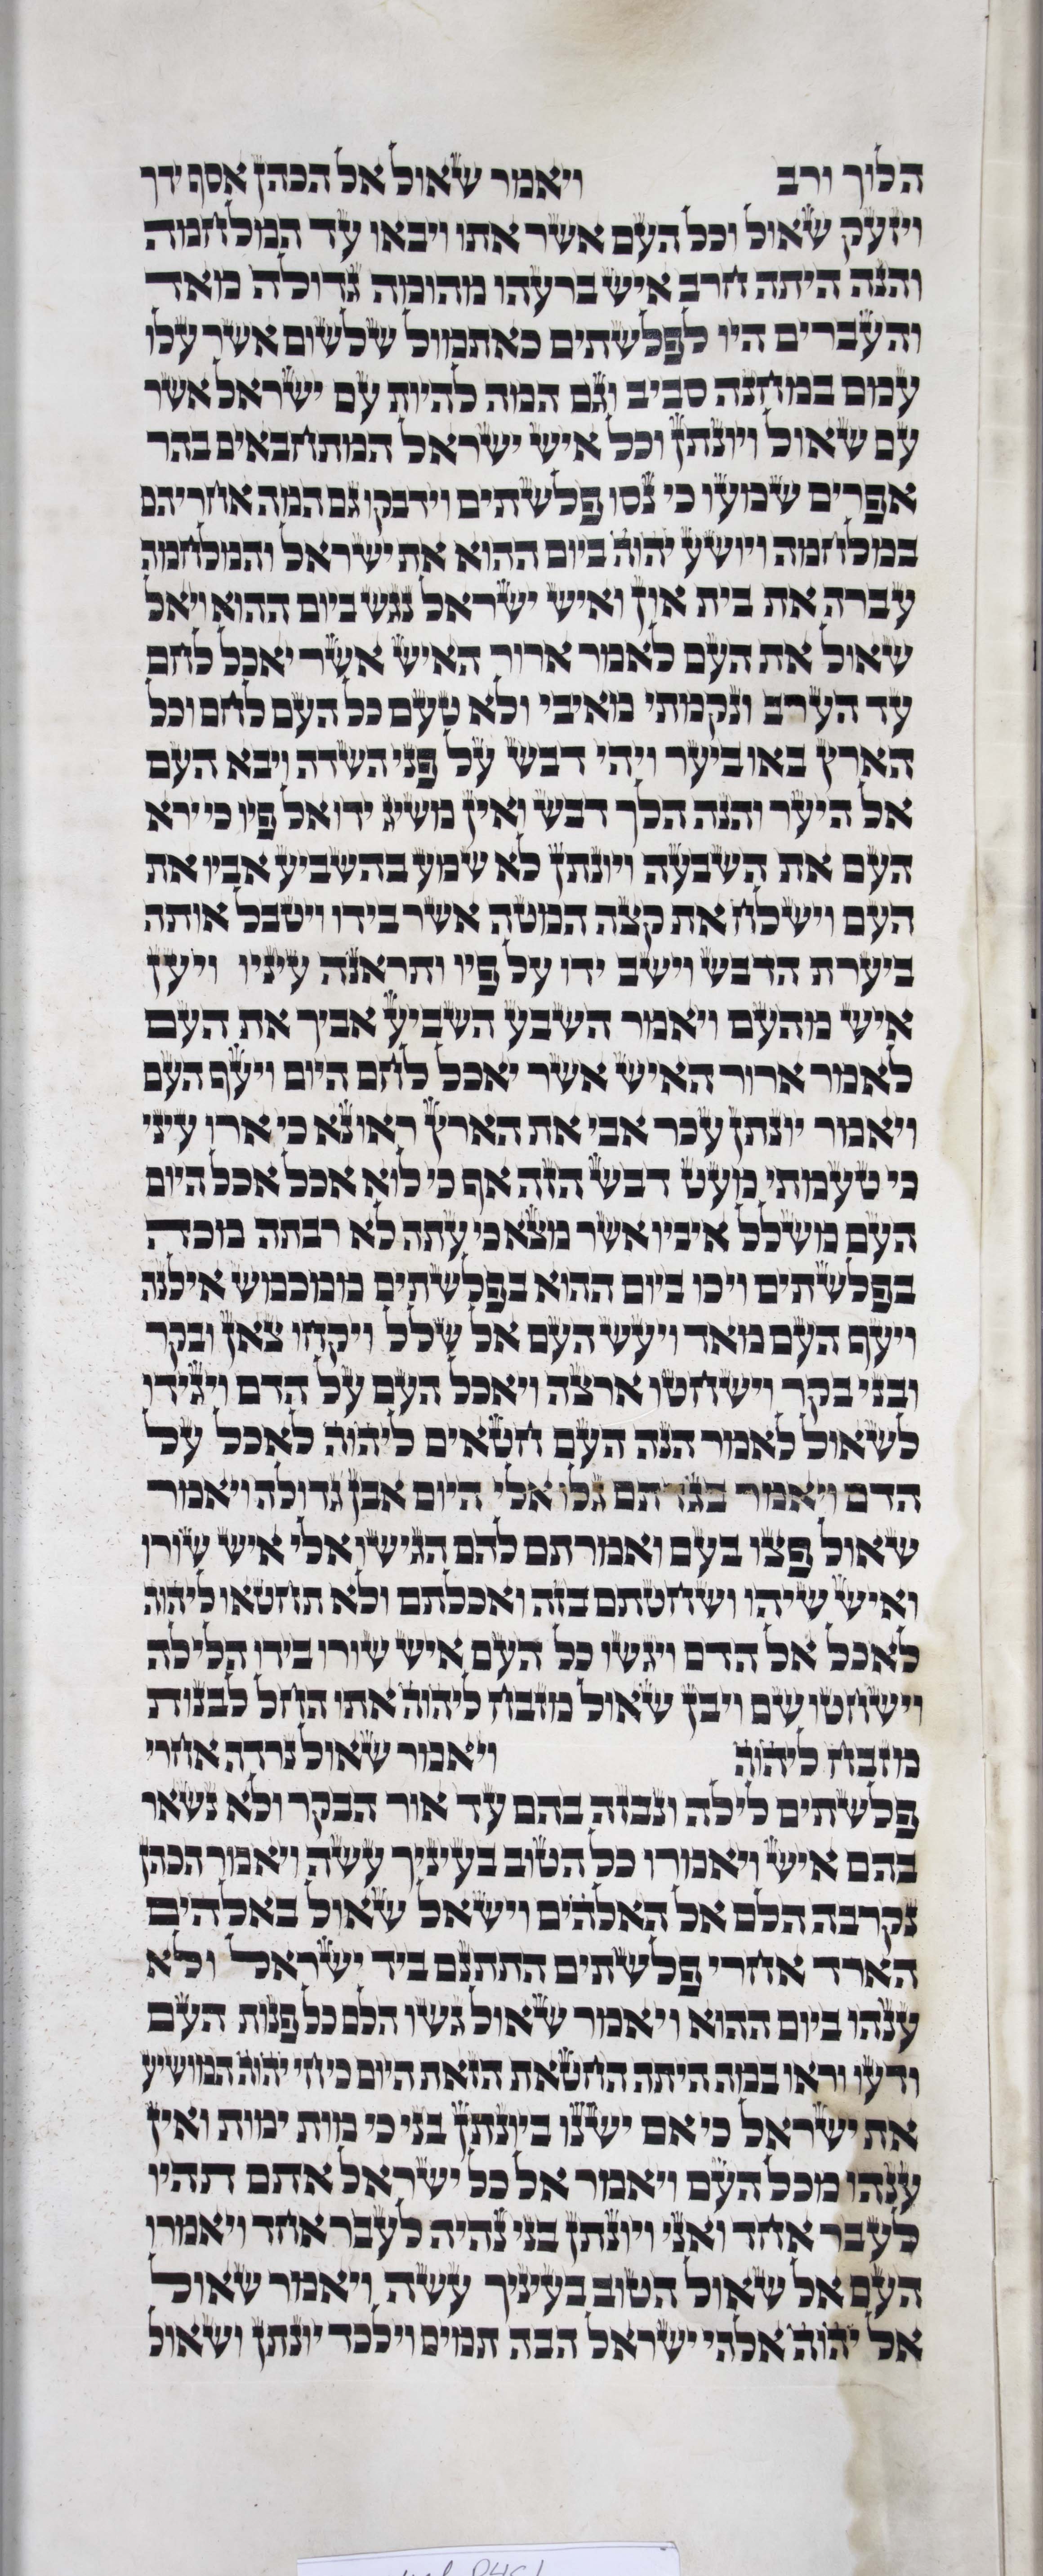 הלוך ורב ויאמר שאול אל הכהן אסף ידך
ויזעק שאול וכל העם אשר אתו ויבאו עד המלחמה
והנה היתה חרב איש ברעהו מהומה גדולה מאד
והעברים היו לפלשתים כאתמול שלשום אשר עלו
עמם במחנה סביב וגם המה להיות עם ישראל אשר
עם שאול ויונתן וכל איש ישראל המתחבאים בהר
אפרים שמעו כי נסו פלשתים וידבקו גם המה אחריהם
במלחמה ויושע יהוה ביום ההוא את ישראל והמלחמה
עברה את בית און ואיש ישראל נגש ביום ההוא ויאל
שאול את העם לאמר ארור האיש אשר יאכל לחם
עד הערב ונקמתי מאיבי ולא טעם כל העם לחם וכל
הארץ באו ביער ויהי דבש על פני השדה ויבא העם
אל היער והנה הלך דבש ואין משיג ידו אל פיו כי ירא
העם את השבעה ויונתן לא שמע בהשביע אביו את
העם וישלח את קצה המטה אשר בידו ויטבל אותה
ביערת הדבש וישב ידו על פיו ותראנה עיניו ויען
איש מהעם ויאמר השבע השביע אביך את העם
לאמר ארור האיש אשר יאכל לחם היום ויעף העם
ויאמר יונתן עכר אבי את הארץ ראו נא כי ארו עיני
כי טעמתי מעט דבש הזה אף כי לוא אכל אכל היום
העם משלל איביו אשר מצא כי עתה לא רבתה מכה
בפלשתים ויכו ביום ההוא בפלשתים ממכמש אילנה
ויעף העם מאד ויעש העם אל שלל ויקחו צאן ובקר
ובני בקר וישחטו ארצה ויאכל העם על הדם ויגידו
לשאול לאמר הנה העם חטאים ליהוה לאכל על
הדם ויאמר בגדתם גלו אלי היום אבן גדולה ויאמר
שאול פצו בעם ואמרתם להם הגישו אלי איש שורו
ואיש שיהו ושחטתם בזה ואכלתם ולא תחטאו ליהוה
לאכל אל הדם ויגשו כל העם איש שורו בידו הלילה
וישחטו שם ויבן שאול מזבח ליהוה אתו החל לבנות
מזבח ליהוה ויאמר שאול נרדה אחרי
פלשתים לילה ונבזה בהם עד אור הבקר ולא נשאר
בהם איש ויאמרו כל הטוב בעיניך עשה ויאמר הכהן
נקרבה הלם אל האלהים וישאל שאול באלהים
הארד אחרי פלשתים התתנם ביד ישראל ולא
ענהו ביום ההוא ויאמר שאול גשו הלם כל פנות העם
ודעו וראו במה היתה החטאת הזאת היום כי חי יהוה המושיע
את ישראל כי אם ישנו ביונתן בני כי מות ימות ואין
ענהו מכל העם ויאמר אל כל ישראל אתם תהיו
לעבר אחד ואני ויונתן בני נהיה לעבר אחד ויאמרו
העם אל שאול הטוב בעיניך עשה ויאמר שאול
אל יהוה אלהי ישראל הבה תמים וילכד יונתן ושאול